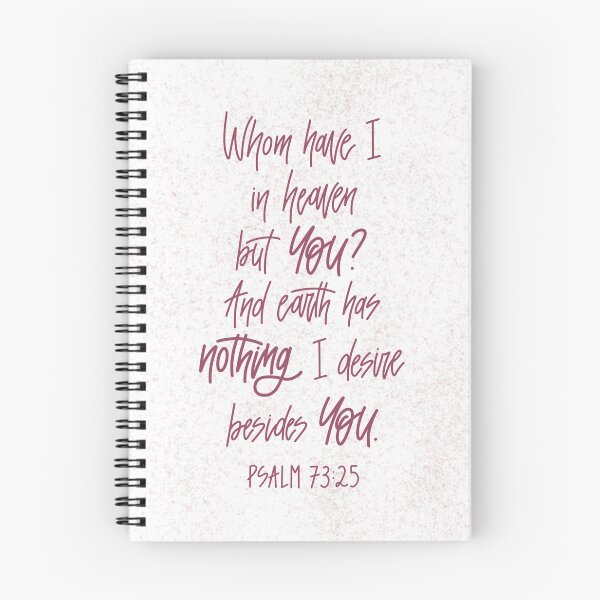 Whom have I
in heaven
but YOU?
And earth has
nothing I desire
besides YOU.
PSALM 73:25